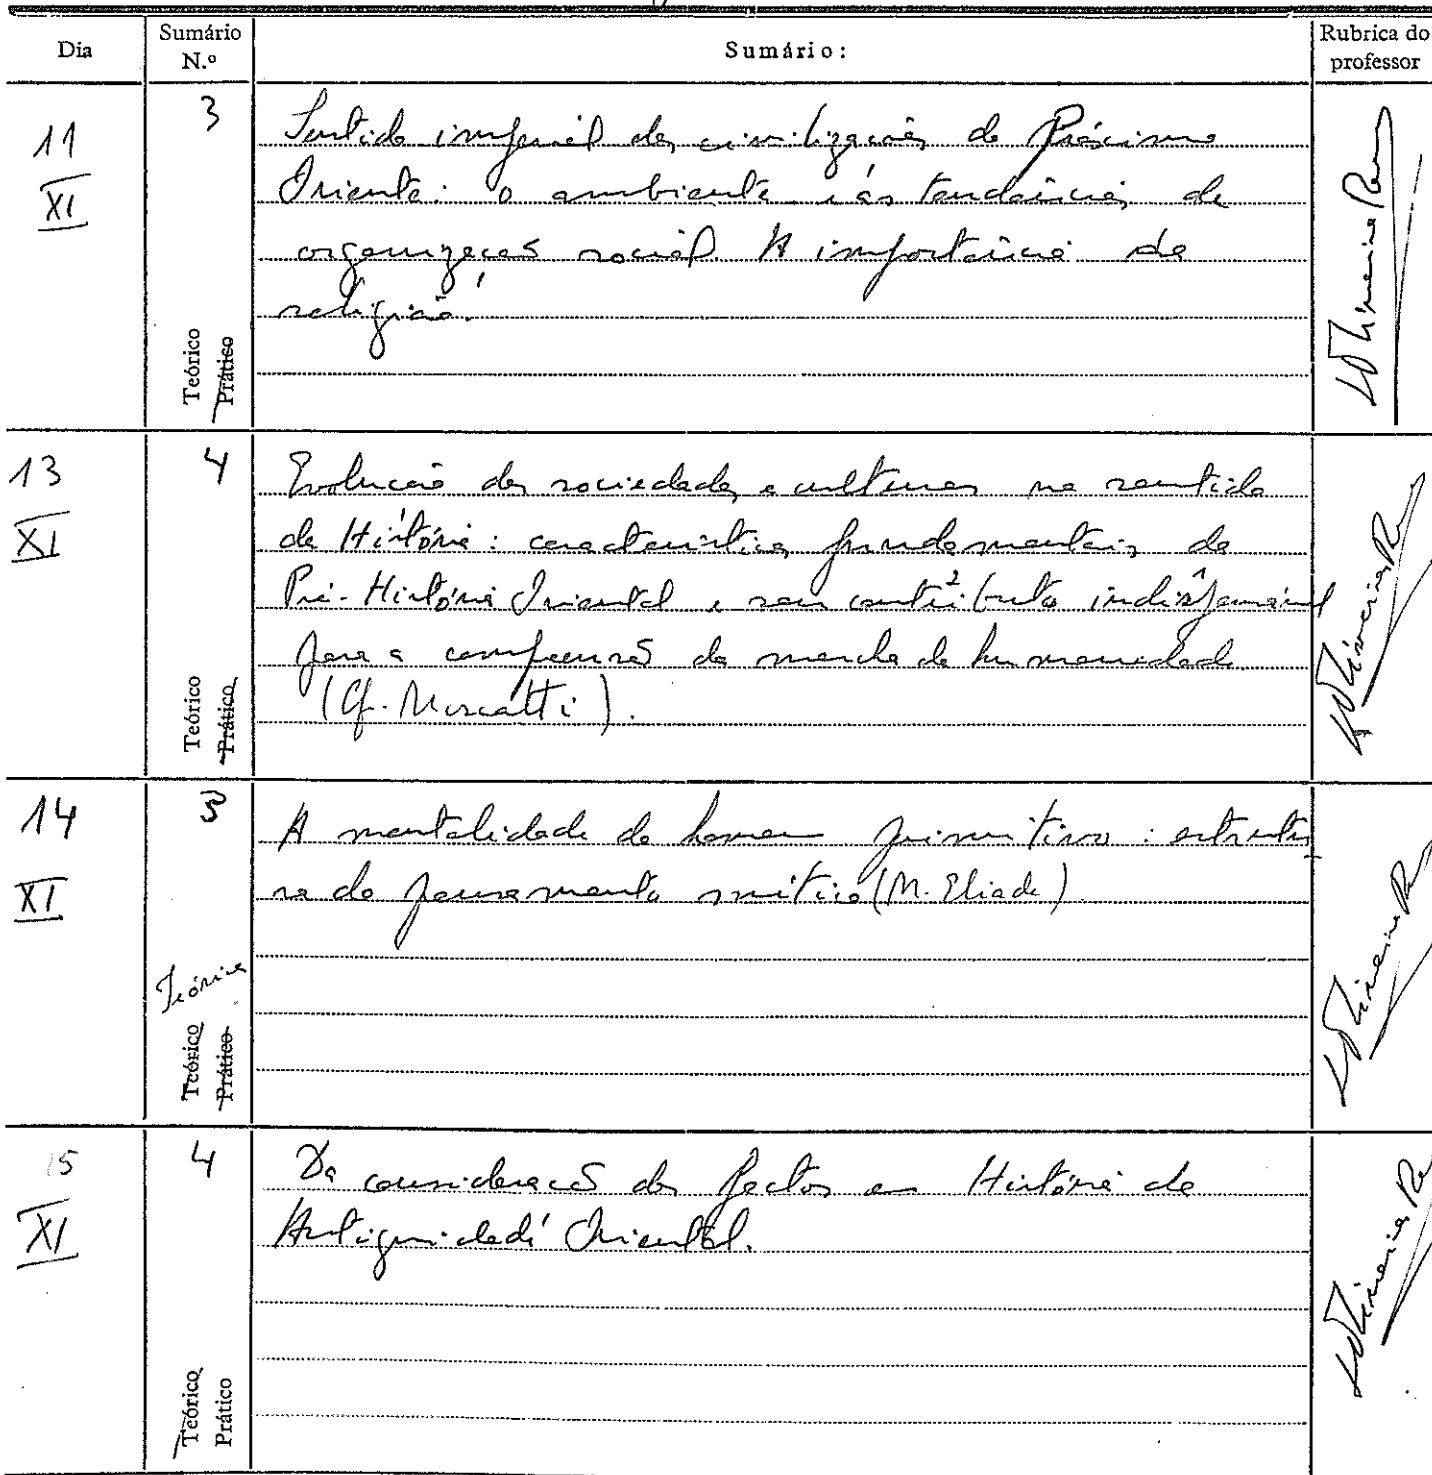 Dia
Sumário N.º
Sumário:
Rubrica do professor
11
XI
3
Teórico
Prático
Sentido imperial das civilizações do Próximo
Oriente: o ambiente e as tendências de
organização social. A importância da
religião.
13
XI
4
Teórico
Prático
Evolução das sociedades e culturas no sentido
da História: características fundamentais da
Pré-História Oriental e seu contributo indispensável
para a compreensão da marcha da humanidade
(Cf. Moscatti).
14
XI
3
Teórica
Teórico
Prático
A mentalidade do homem primitivo: estrutu
ra do pensamento mítico (M. Eliade)
15
XI
4
Teórico
Prático
Da consideração dos factos em História da
Antiguidade Oriental.